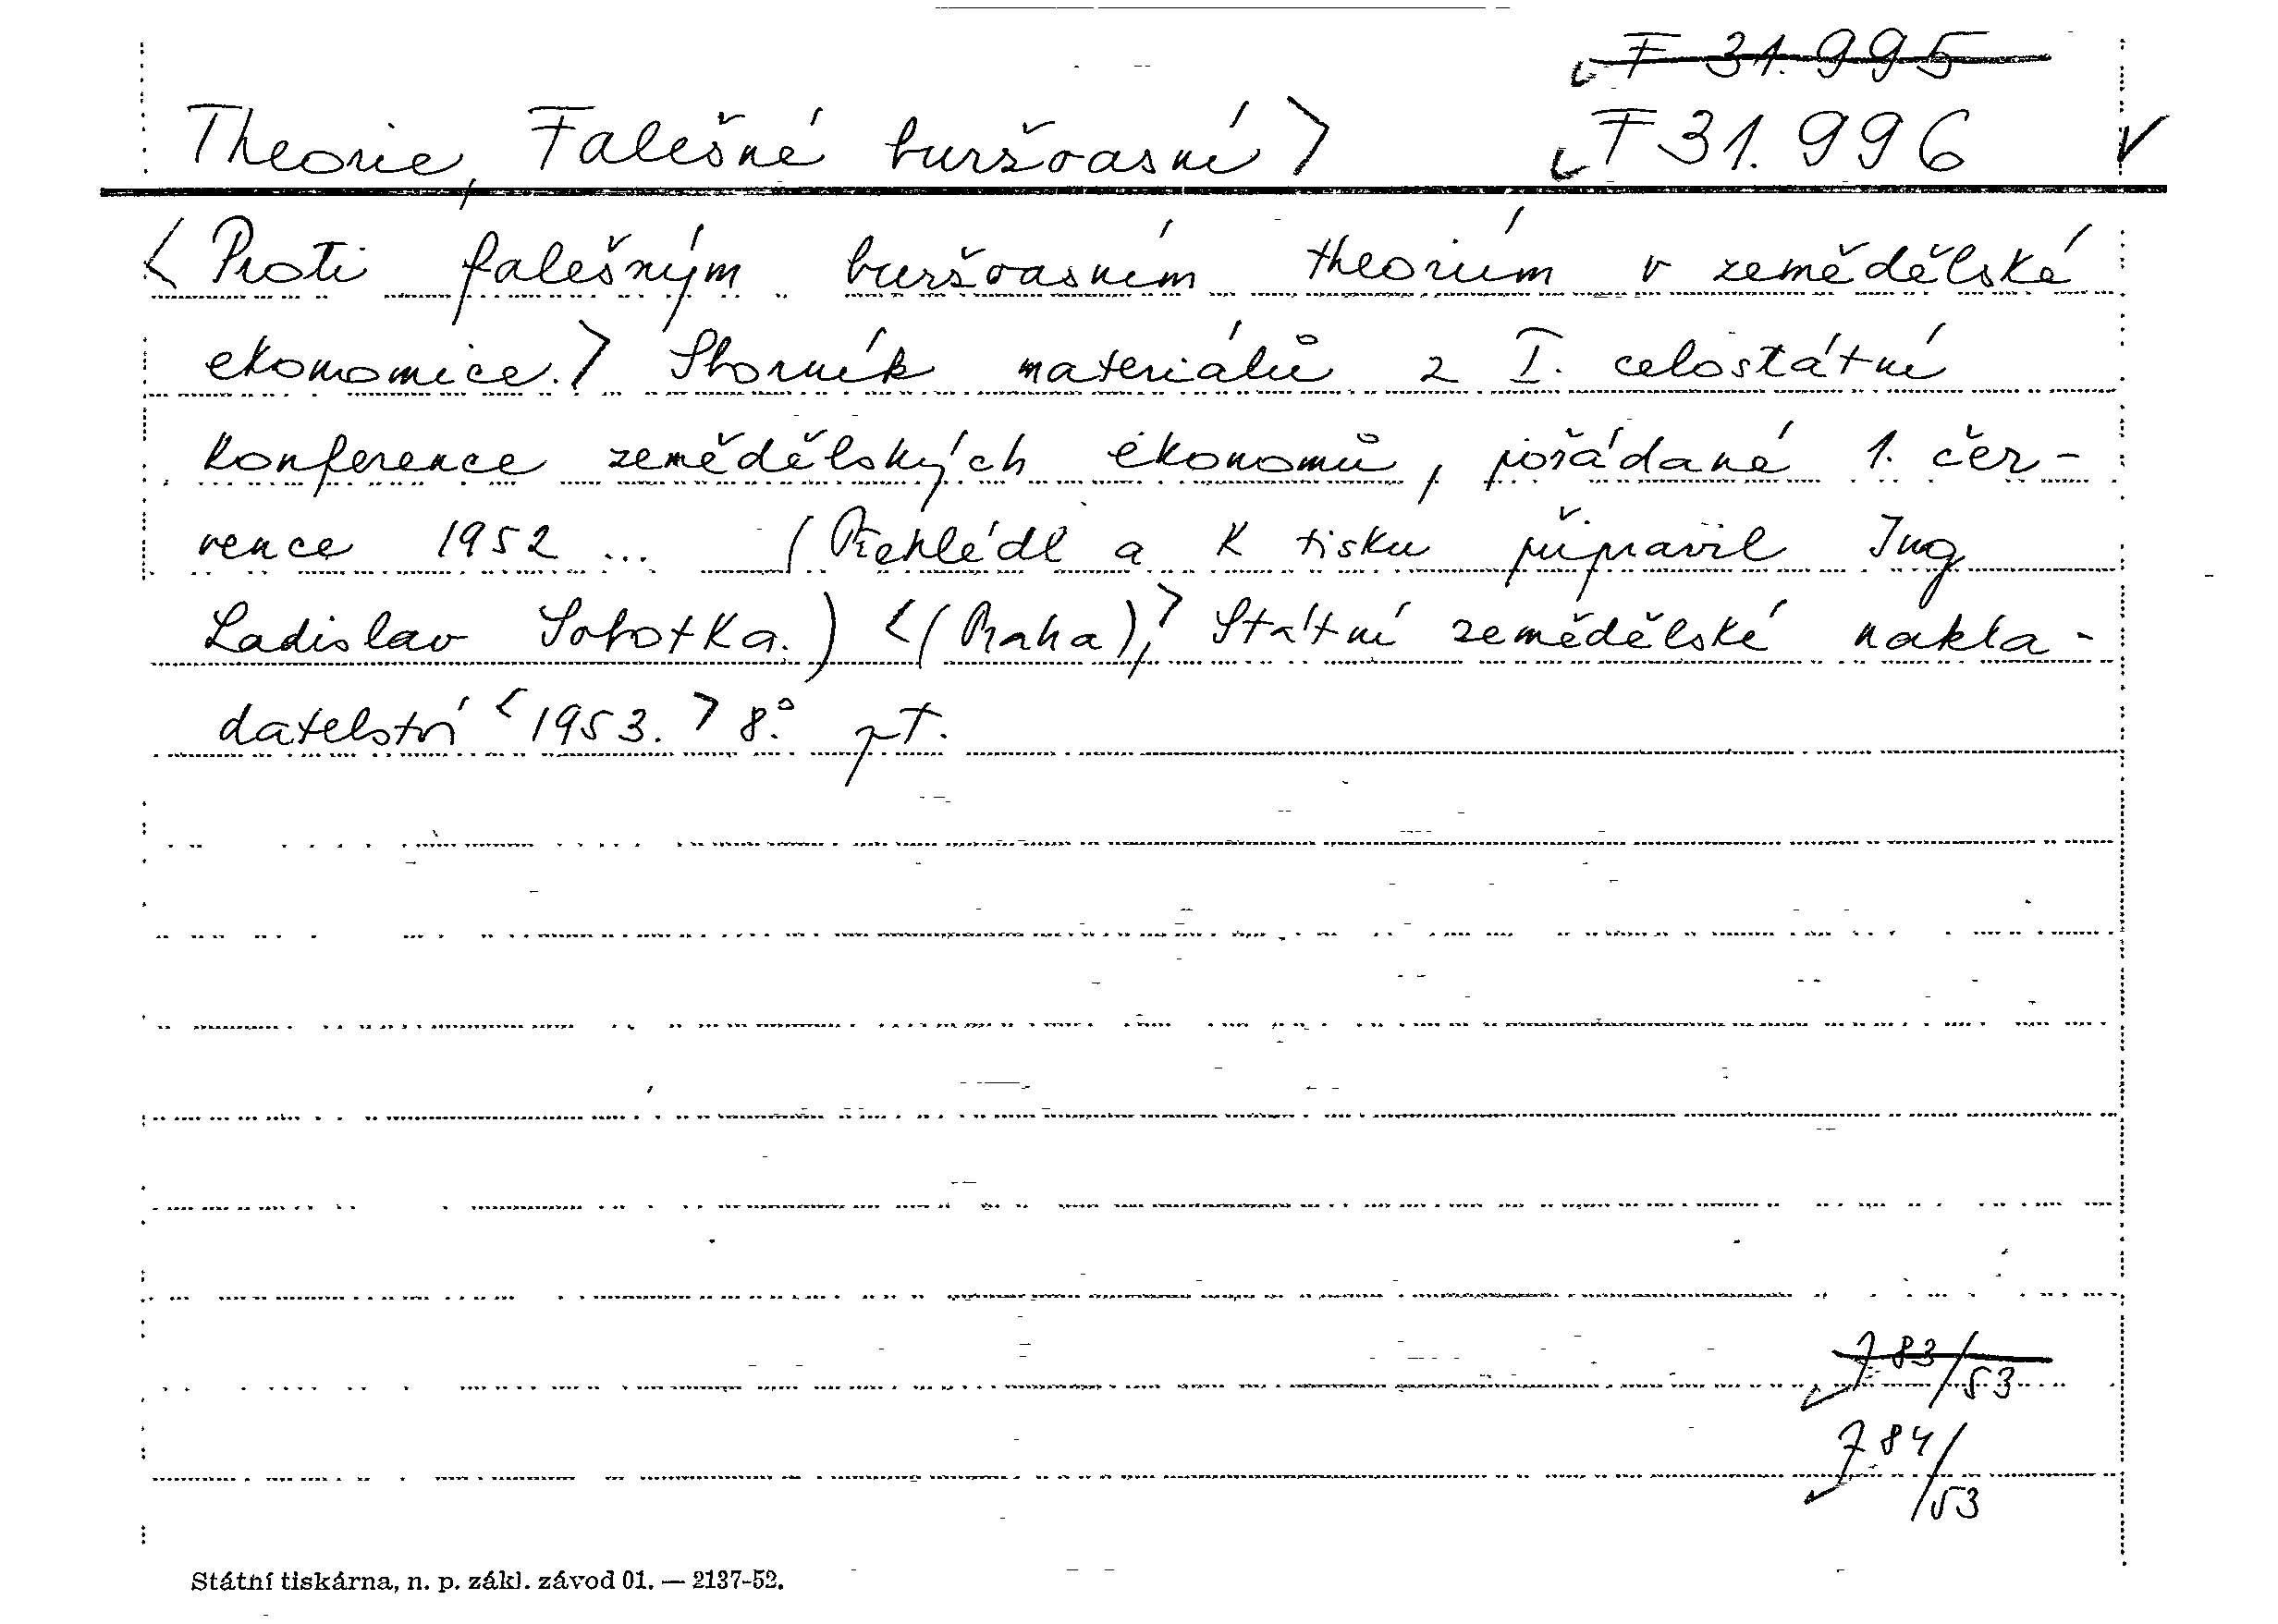 F 31.995
Theorie, Falešné buržoasní >
F 31.996
< Proti falešným buržoasním theoriím v zemědělské
ekonomice. > Sborník materiálů z I. celostátní
konference zemědělských ekonomů, pořádané 1. čer-
vence 1952 ... (Přehlédl a k tisku připravil Ing
Ladislav Sobotka.) <(Praha),> Státní zemědělské nakla-
datelství <1953.> 8.° pt.
783/53
784/53
Státní tiskárna, n. p. zákl. závod 01. — 2137-52.